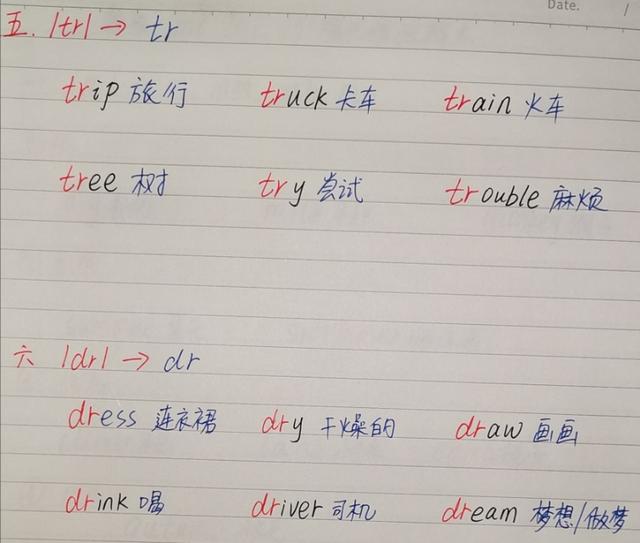 Date. /
五. /tr/ → tr
trip 旅行 truck 卡车 train 火车
tree 树 try 尝试 trouble 麻烦
六 /dr/ → dr
dress 连衣裙 dry 干燥的 draw 画画
drink 喝 driver 司机 dream 梦想/做梦